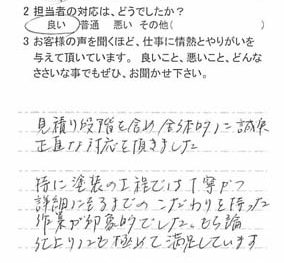 2 担当者の対応は、どうでしたか？
良い 普通 悪い その他( )
3 お客様の声を聞くほど、仕事に情熱とやりがいを
与えて頂いています。 良いこと、悪いこと、どんな
ささいな事でもぜひ、お聞かせ下さい。
見積り段階を含め全体的に誠実
正直な対応を頂きました
特に塗装の工程では丁寧かつ
詳細にいたるまでのこだわりを持った
作業が印象的でした。もち論
仕上りにも極めて満足しています